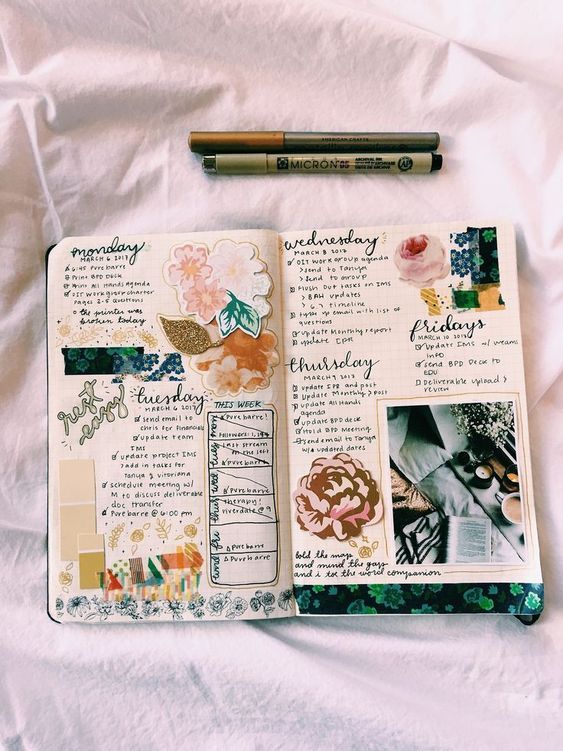 AMERICAN CRAFTS
MICRON 05 ARCHIVAL INK
monday
MARCH 6 2017
6:45 Pure barre
Print BPD DECK
Print All Hands agenda
OIT work group charter
pages 2-5 questions
the printer was
broken today
rest
easy
tuesday
MARCH 6 2017
send email to
chris for financials
update team
IMS
update project IMS
>add in tasks for
Tanya & Victoriana
schedule meeting w/
M to discuss deliverable
doc transfer
Pure barre @ 4:00 pm
THIS WEEK
mon
Pure barre!
Followers:
tues
Last stream
on the left
Pure barre
wed
Pure barre
thurs
therapy!
riverdale @ 9
fri
Pure barre
wknd
Pure barre
wednesday
MARCH 8 2017
OIT work group agenda
>send to Tanya
>send to group
Flush out tasks on IMS
> BAH updates
> 6.7 timeline
type up email with list of
questions
update Monthly report
update IPR
thursday
MARCH 9 2017
update IPR and post
update Monthly & post
update All Hands
agenda
update BPD deck
Hold BPD Meeting
send email to Tanya
w/ updated dates
fridays
MARCH 10 2017
update IMS w/
info
send BPD Deck to
EDU
Deliverable upload &
review
told the man
and mind the gaps
and i tote the word companion